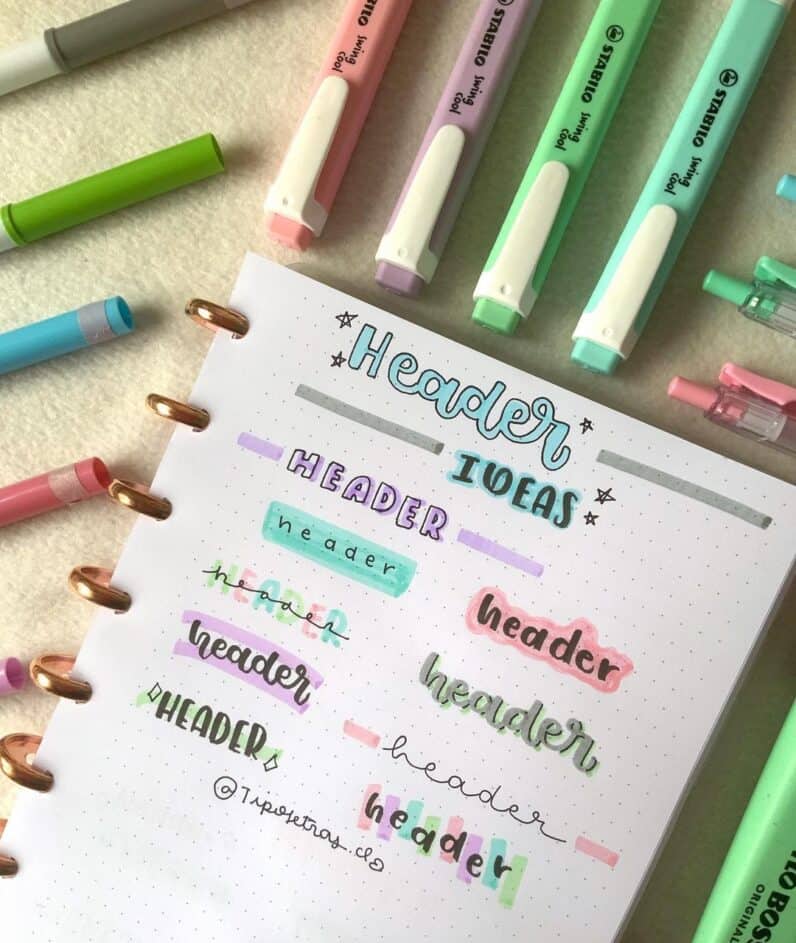 STABILO swing cool
STABILO swing cool
STABILO swing cool
STABILO swing cool
Header
IDEAS
HEADER
header
HEADER
header
header
header
header
HEADER
header
header
@Tiposetras.cl
ILO BOSS
ORIGINAL